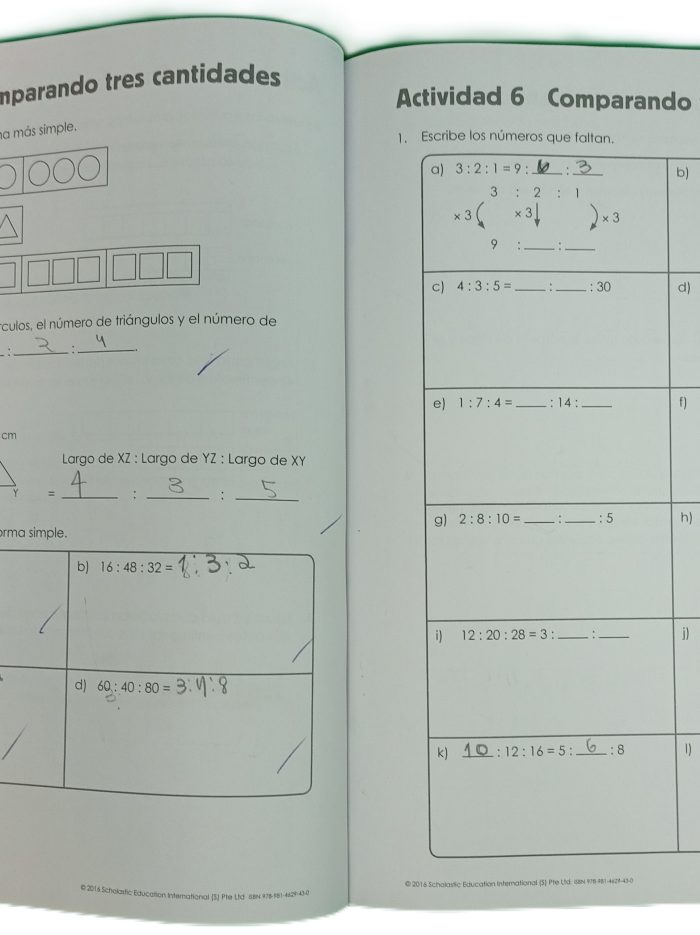 mparando tres cantidades
a más simple.
rculos, el número de triángulos y el número de
: 2 : 4 .
cm
Y
Largo de XZ : Largo de YZ : Largo de XY
= 4 : 3 : 5
orma simple.
b) 16 : 48 : 32 = 1 : 3 : 2
d) 60 : 40 : 80 =
© 2016 Scholastic Education International (S) Pte Ltd ISBN 978-981-4629-43-0
Actividad 6 Comparando
1. Escribe los números que faltan.
a) 3 : 2 : 1 = 9 : 6 : 3
3 : 2 : 1
× 3 × 3 × 3
9 : ____ : ____
b)
c) 4 : 3 : 5 = ____ : ____ : 30
d)
e) 1 : 7 : 4 = ____ : 14 : ____
f)
g) 2 : 8 : 10 = ____ : ____ : 5
h)
i) 12 : 20 : 28 = 3 : ____ : ____
j)
k) 10 : 12 : 16 = 5 : 6 : 8
l)
© 2016 Scholastic Education International (S) Pte Ltd ISBN 978-981-4629-43-0